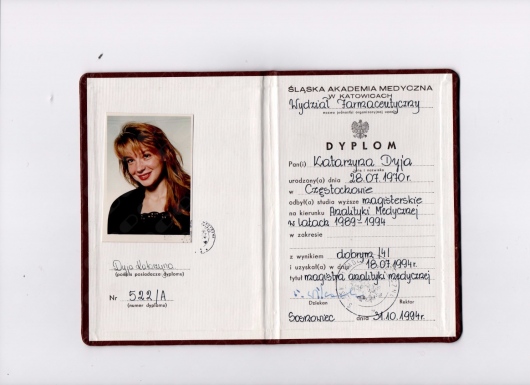 Dyja Katarzyna
(podpis posiadacza dyplomu)
Nr 522/A
(numer dyplomu)
ŚLĄSKA AKADEMIA MEDYCZNA
W KATOWICACH
Wydział Farmaceutyczny
nazwa jednostki organizacyjnej uczelni
DYPLOM
Pan(i) Katarzyna Dyja
imię i nazwisko
urodzony(a) dnia 28.07.1970r.
w Częstochowie
odbył(a) studia wyższe magisterskie
na kierunku Analityki Medycznej
w latach 1989-1994
w zakresie
z wynikiem dobrym /4/
i uzyskał(a) w dniu 18.07.1994r.
tytuł magistra analityki medycznej
Dziekan Rektor
Sosnowiec dnia 31.10.1994r.